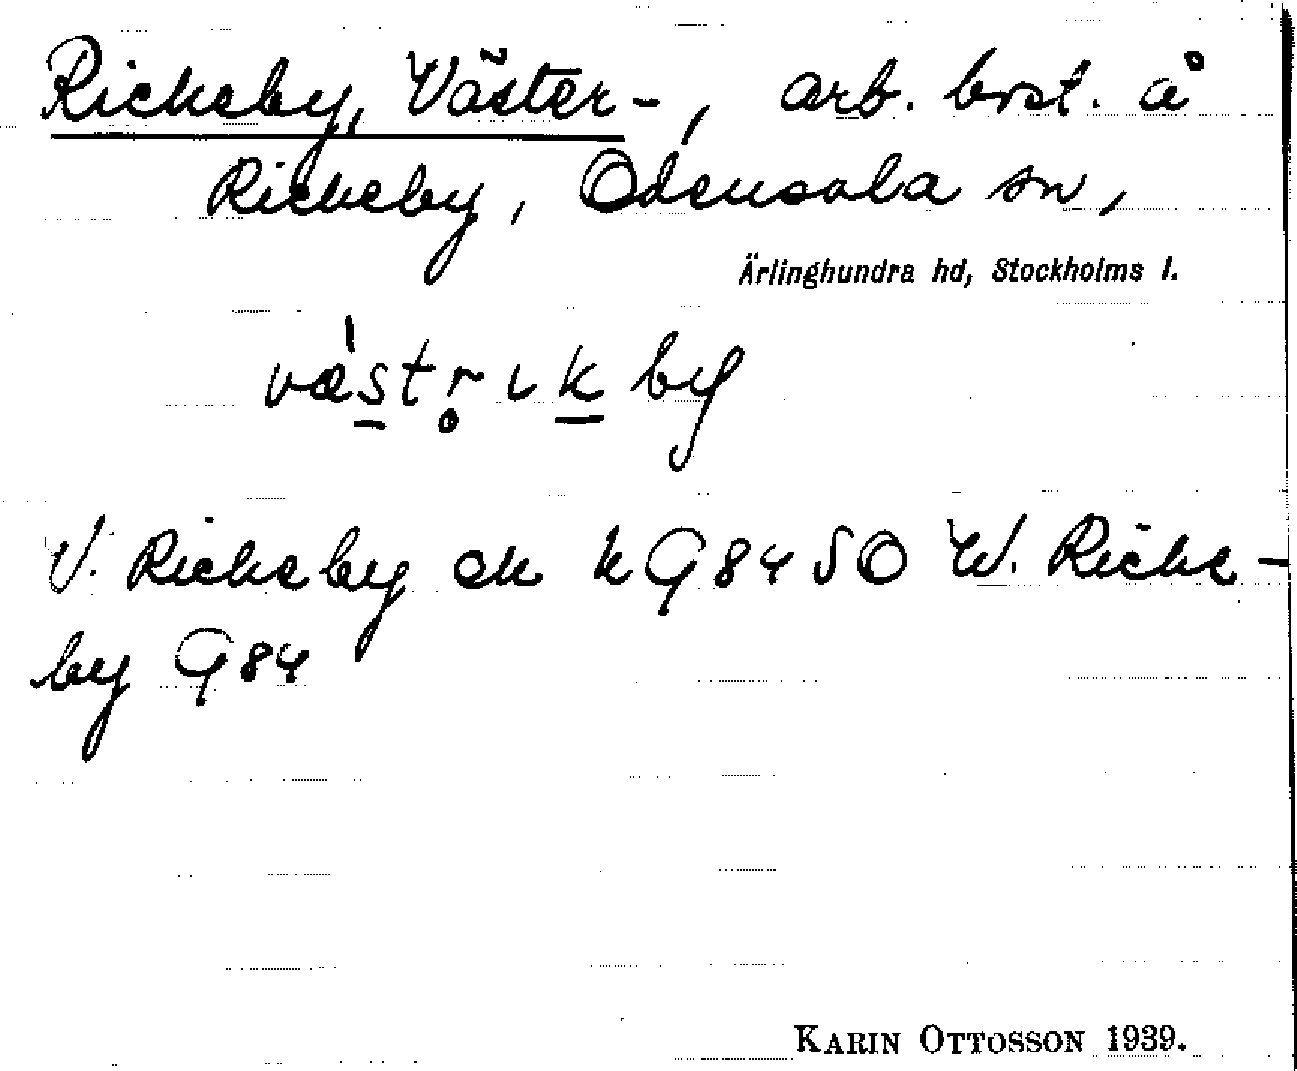 Rickeby, Väster-, arb. bost. å
Rickeby, Odensala sn,
Ärlinghundra hd, Stockholms l.
væ̍s̲tr̥ık̲by
V. Rickeby ek kG84 SO W. Ricke-
by G84
KARIN OTTOSSON 1939.